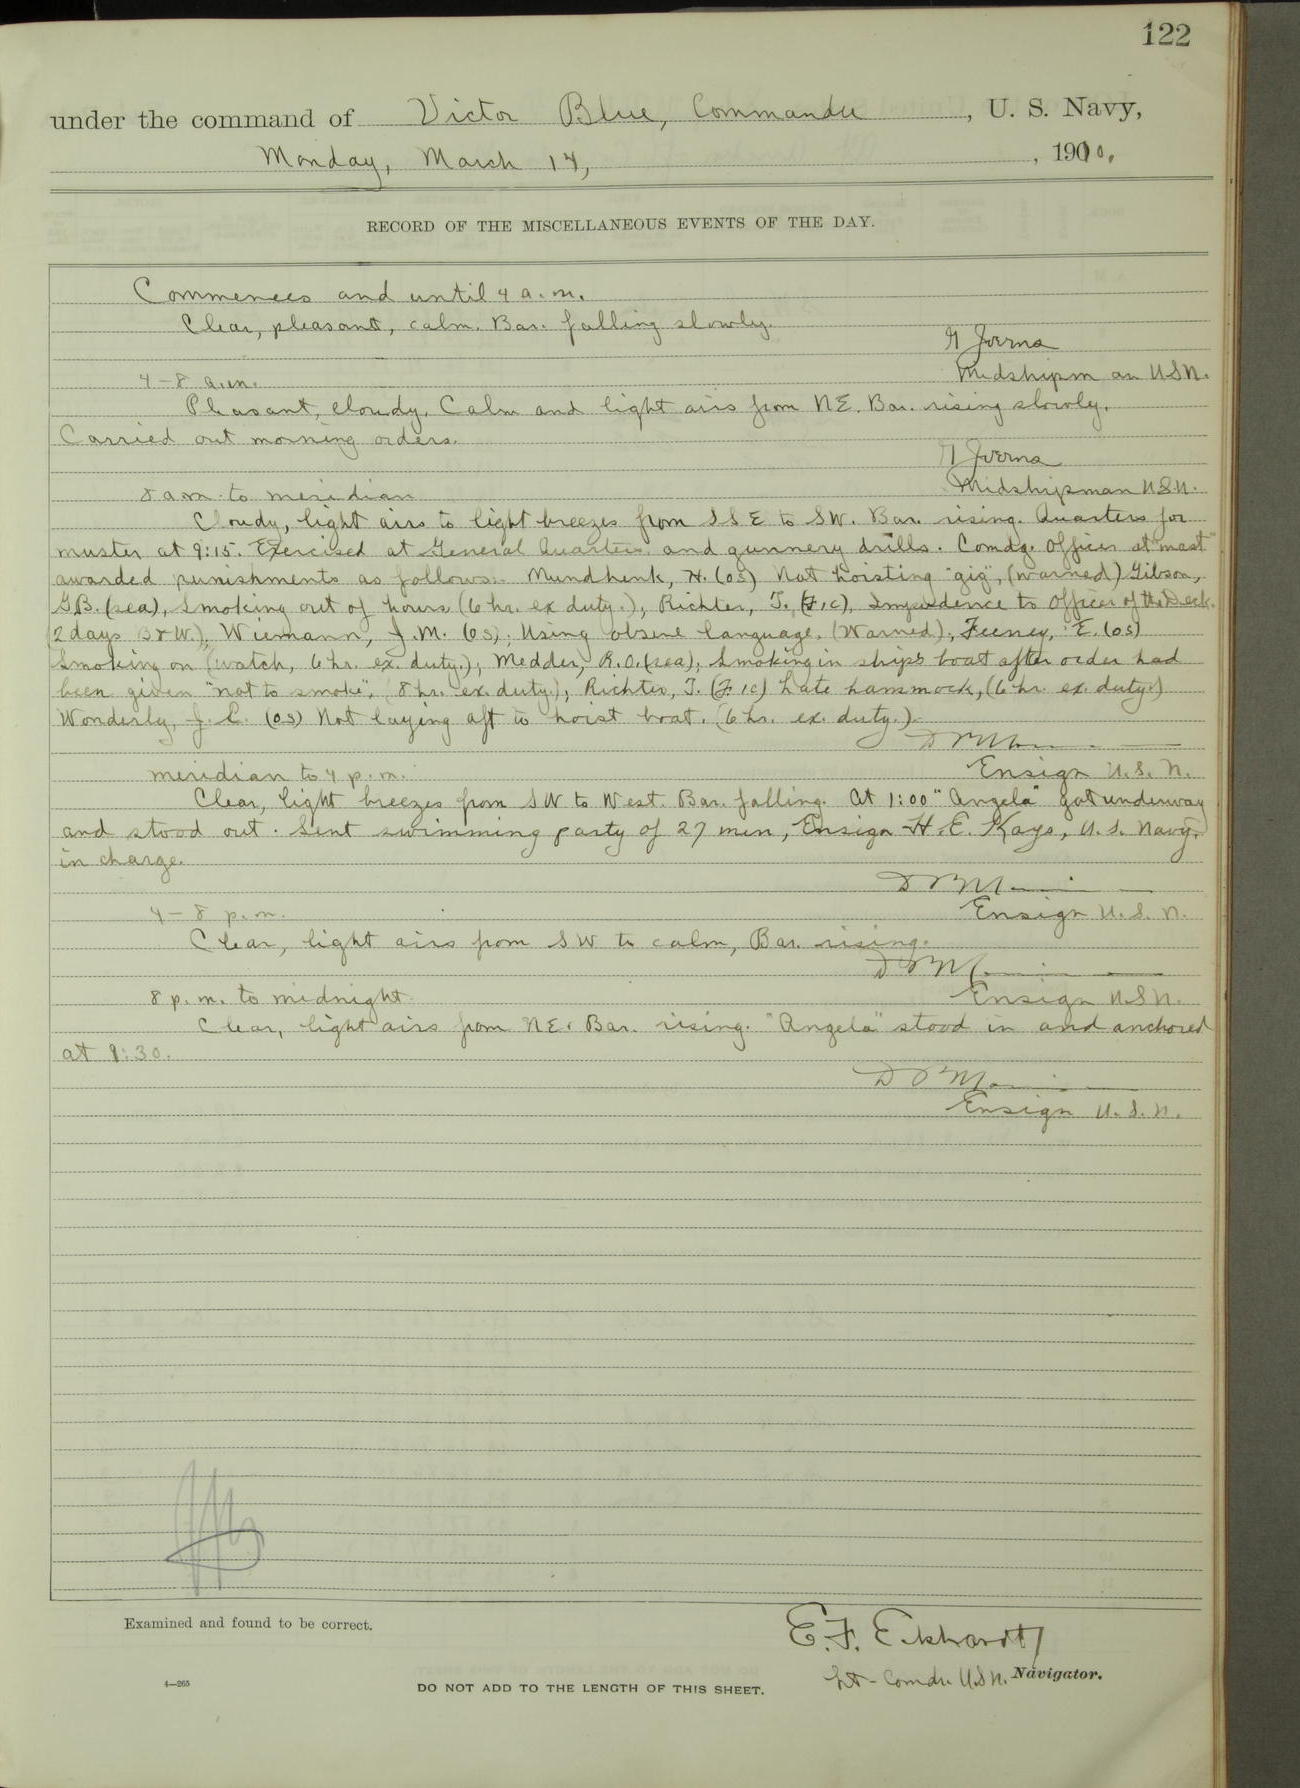 122
under the command of Victor Blue, Commander, U. S. Navy,
Monday, March 14, 1910.
RECORD OF THE MISCELLANEOUS EVENTS OF THE DAY.
Commences and until 4 a.m.
Clear, pleasant, calm. Bar. falling slowly.
4-8 a.m. Midshipman USN.
Pleasant, cloudy. Calm and light airs from NE. Bar. rising slowly.
Carried out morning orders.
8 a.m. to meridian Midshipman U.S.N.
Cloudy, light airs to light breezes from SSE to SW. Bar. rising. Quarters for
muster at 9:15. Exercised at General Quarters and gunnery drills. Comdg. Officer at "mast"
awarded punishments as follows:- Mundhenk, H. (OS) Not hoisting "gig", (warned) Gibson,
G.B. (sea), Smoking out of hours (6 hr. ex duty.), Richter, T. (F1C), Impudence to Officer of the Deck.
(2 days B&W.), Wiemann, J.M. (OS); Using obsene language. (Warned), Feeney, E. (OS)
Smoking on (watch, 6 hr. ex. duty.), Medder, R.O. (sea), Smoking in ship's boat after order had
been given "not to smoke", (8 hr. ex. duty.), Richter, T. (F.1C) Late hammock, (6 hr. ex. duty.)
Wonderly, J. E. (OS) Not laying aft to hoist boat. (6 hr. ex. duty.)
meridian to 4 p.m. Ensign U.S.N.
Clear, light breezes from SW to West. Bar. falling. At 1:00 "Angela" got underway
and stood out. Sent swimming party of 27 men, Ensign H.E. Kays, U.S. Navy,
in charge.
4-8 p.m. Ensign U.S.N.
Clear, light airs from SW to calm, Bar. rising.
8 p.m. to midnight Ensign USN.
Clear, light airs from NE. Bar. rising. "Angela" stood in and anchored
at 9:30.
Ensign U.S.N.
Examined and found to be correct.
E.F. Eckhardt
Lt-Comdr. U.S.N. Navigator.
4—265
DO NOT ADD TO THE LENGTH OF THIS SHEET.